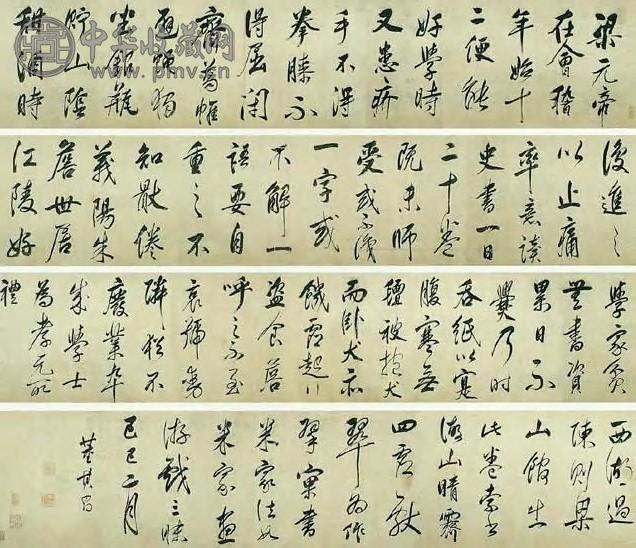 中华收藏网
www.pmv.cn
梁元帝
在會稽
年始十
二便能
好學時
又患疥
手不得
拳膝不
得屈閑
齋葛幃
避蠅獨
坐銀
貯山陰
甜酒時
復進之
以止痛
率意讀
史書一日
二十卷
既未師
受或不識
一字或
不解一
語要自
重之不
知厭倦
義陽朱
詹世居
江陵好
學家貧
無書資
累日不
爨乃時
吞紙以寔
腹寒無
氈被抱犬
而臥犬亦
饑虛起行
盜食
呼之不至
哀號動
隣猶不
廢業卒
成學士
為孝元所
禮
西湖過
陳則
山館出
此卷索書
海山晴霽
四獻
翠為作
擘窠書
米家法如
米家畫
游戲三昧
己巳二月
董其昌